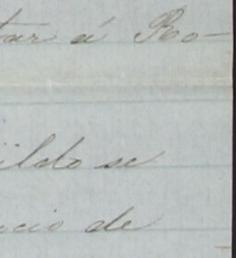 tar á Ro-
ildo se
ocio de